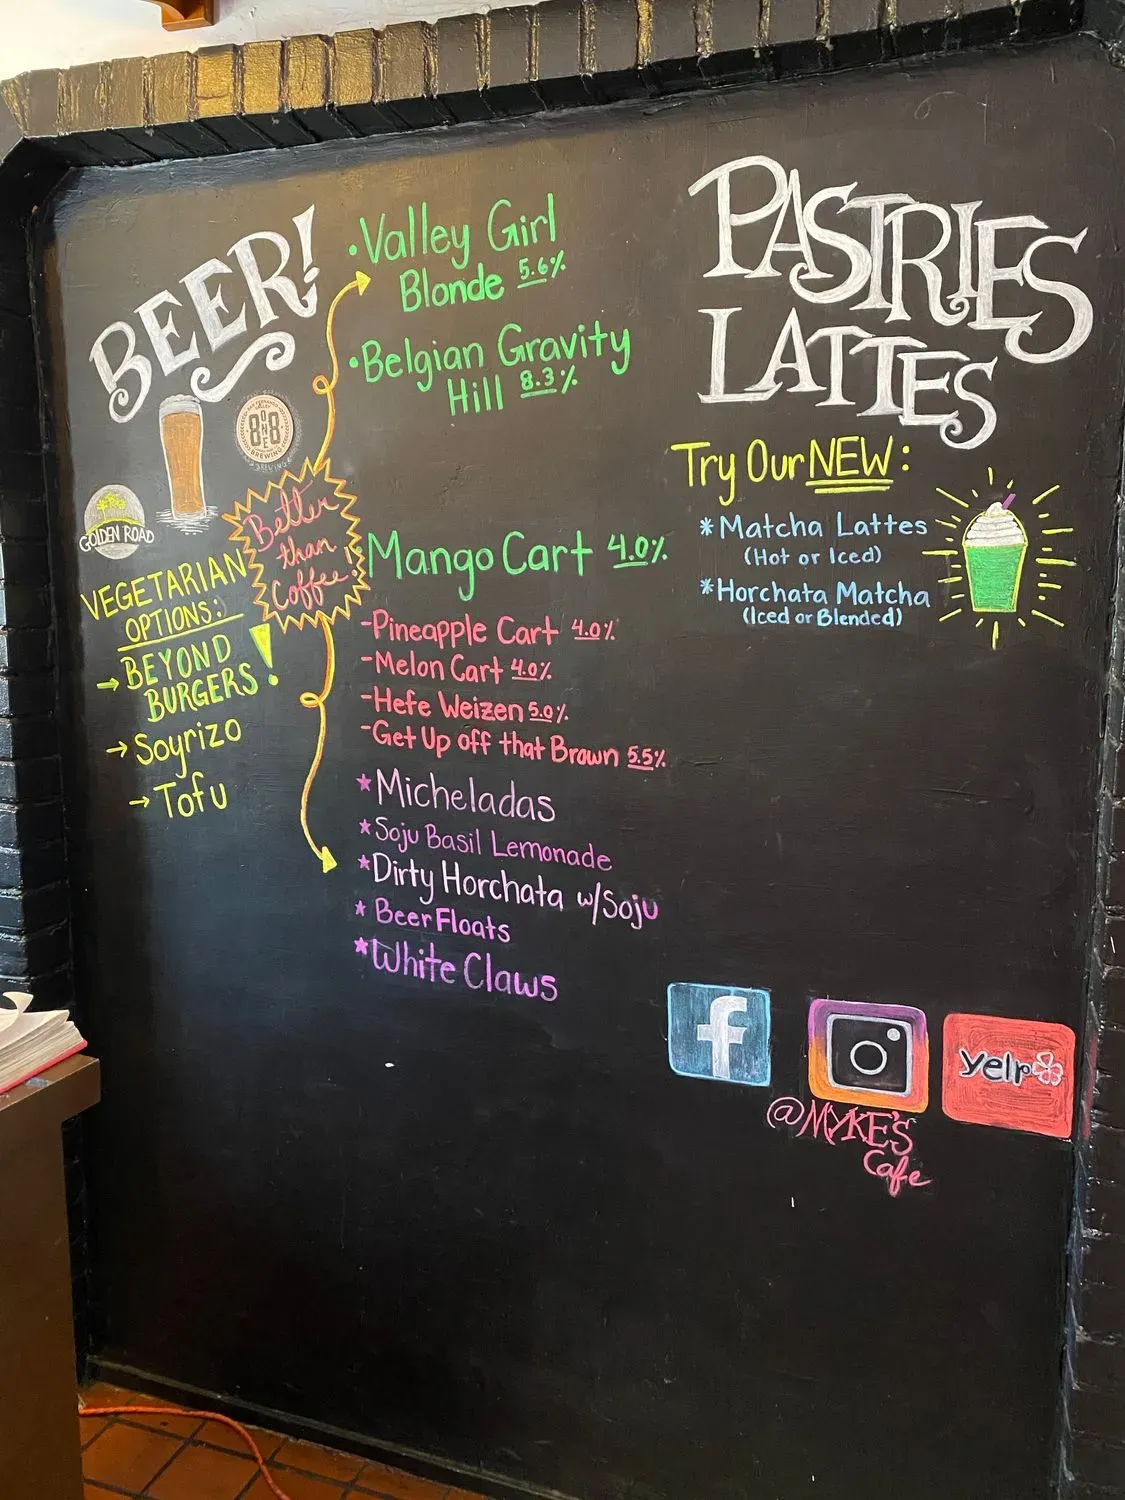 BEER!
• Valley Girl
Blonde 5.6%
• Belgian Gravity
Hill 8.3%
8ONE8
BREWING
GOLDEN ROAD
Better
than
Coffee!
VEGETARIAN
OPTIONS:
→ BEYOND
BURGERS!
→ Soyrizo
→ Tofu
Mango Cart 4.0%
-Pineapple Cart 4.0%
-Melon Cart 4.0%
-Hefe Weizen 5.0%
-Get Up off that Brown 5.5%
★Micheladas
★Soju Basil Lemonade
★Dirty Horchata w/Soju
★Beer Floats
★White Claws
PASTRIES
LATTES
Try Our NEW:
*Matcha Lattes
(Hot or Iced)
*Horchata Matcha
(Iced or Blended)
f
yelp
@MYKE'S
Cafe